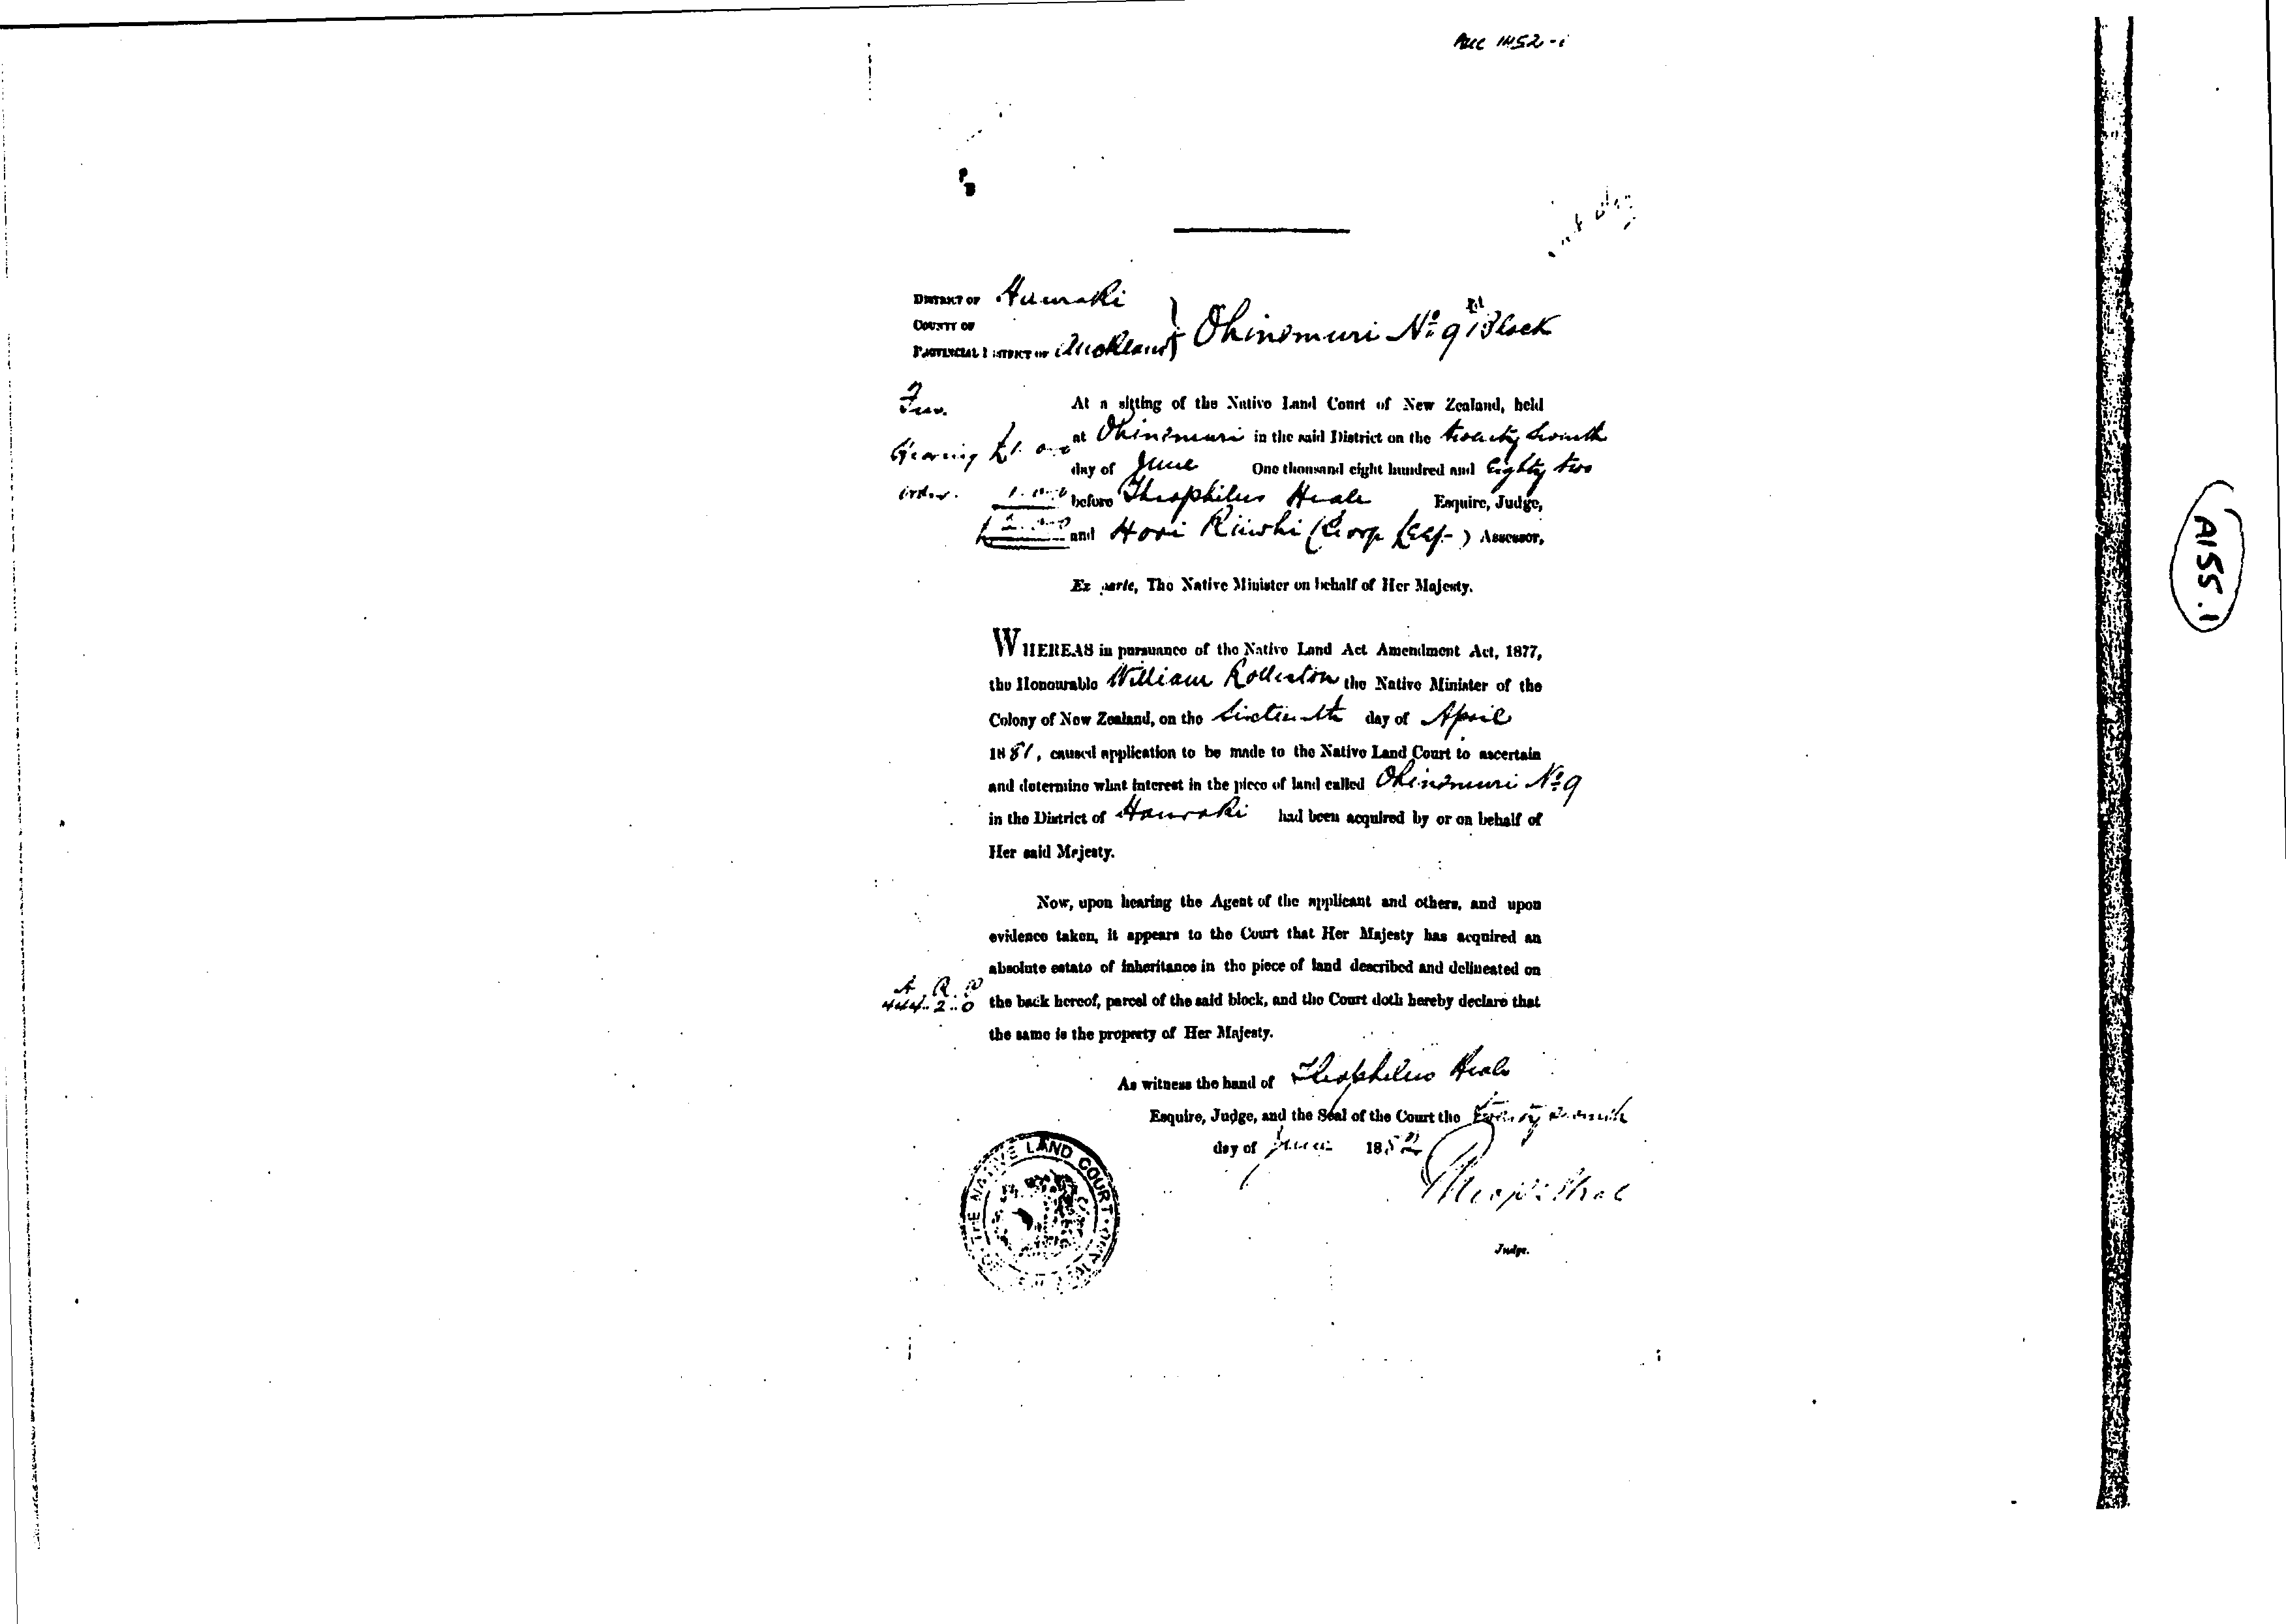 AUC 1452-i
DISTRICT OF Hauraki
COUNTY OF
PROVINCIAL DISTRICT OF Auckland
Ohinemuri No 9 Block
At a sitting of the Native Land Court of New Zealand, held
at Ohinemuri in the said District on the twenty seventh
Hearing £1
day of June One thousand eight hundred and Eighty two
order.
before Theophilus Heale Esquire, Judge,
and Hori Assessor,
Ex parte, The Native Minister on behalf of Her Majesty.
WHEREAS in pursuance of the Native Land Act Amendment Act, 1877,
the Honourable William Rolleston the Native Minister of the
Colony of New Zealand, on the Sixteenth day of April
1881, caused application to be made to the Native Land Court to ascertain
and determine what interest in the piece of land called Ohinemuri No 9
in the District of Hauraki had been acquired by or on behalf of
Her said Majesty.
Now, upon hearing the Agent of the applicant and others, and upon
evidence taken, it appears to the Court that Her Majesty has acquired an
absolute estate of inheritance in the piece of land described and delineated on
A. R. P.
444..2..0
the back hereof, parcel of the said block, and the Court doth hereby declare that
the same is the property of Her Majesty.
As witness the hand of Theophilus Heale
Esquire, Judge, and the Seal of the Court the twenty seventh
day of June 1882
Theop: Heale
Judge.
THE NATIVE LAND COURT
A155.1